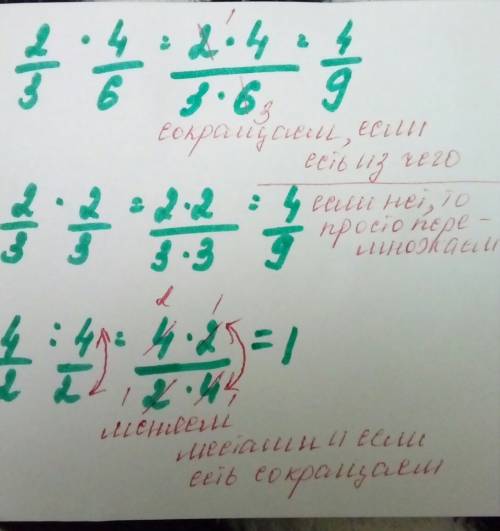 2/3 · 4/6 = 2·4/3·6 = 4/9
1
3
сокращаем, если
есть из чего
2/3 · 2/3 = 2·2/3·3 = 4/9
если нет, то
просто пере-
множаем
4/2 : 4/2 = 4·2/2·4 = 1
2 1
1 1
меняем
местами и если
есть сокращаем